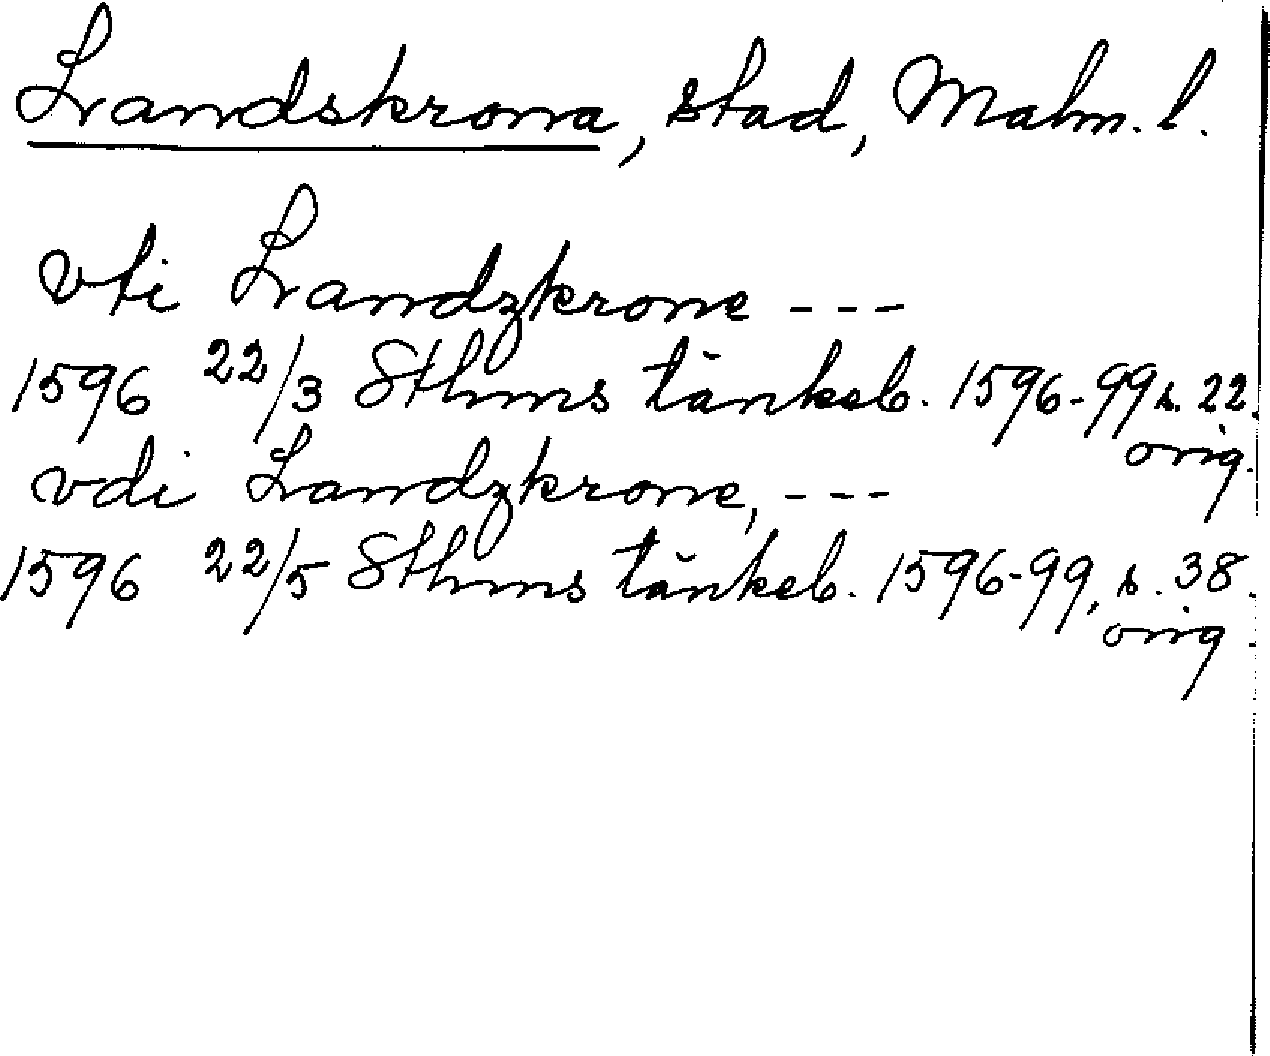 Landskrona, stad, Malm. l.
vti Landzkrone ---
1596 22/3 Sthms tänkeb. 1596-99 s. 22.
orig.
vdi Landzkrone, ---
1596 22/5 Sthms tänkeb. 1596-99, s. 38.
orig.